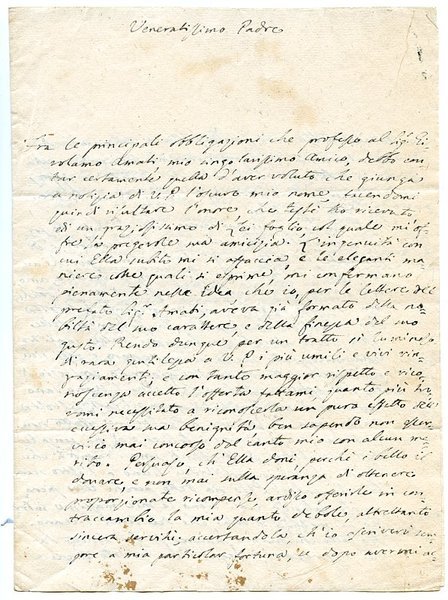 Veneratissimo Padre
Fra le principali obbligazioni che professo al Sig. Gi-
rolamo Amati mio singolarissimo Amico, debbo con
tar certamente quella d'aver voluto che giunga
a notizia di V. P. l'oscuro mio nome, facendomi
quindi risaltare l'onore, che testè ho ricevuto,
di un pregiatissimo di Lei foglio, col quale mi of-
fre la pregevole sua amicizia. L'ingenuità con
cui Ella subito mi si affaccia e le eleganti ma-
niere colle quali si esprime, mi confermano
pienamente nella Idea che io, per le lettere del
pregiato Sig. Amati, aveva già formato della no-
biltà del suo carattere e della finezza del suo
gusto. Rendo dunque per un tratto sì luminoso
di rara gentilezza a V. P. i più umili e vivi rin-
graziamenti, e con tanto maggior rispetto e rico-
noscenza accetto l'offerta fattami, quanto più tro-
vomi necessitato a riconoscerla un puro effetto dell'
eccessiva sua benignità, ben sapendo non esser-
vi io mai concorso dal canto mio con alcun me-
rito. Persuaso, ch'Ella doni, perchè è bello il
donare, e non mai sulla speranza di ottenere
proporzionate ricompenze ardisco offerirle in con-
traccambio la mia quanto debole altrettanto
sincera servitù; accertandola, ch'io ascriverò sem-
pre a mia particolar fortuna, se dopo avermi